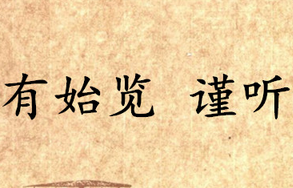 有始览 谨听